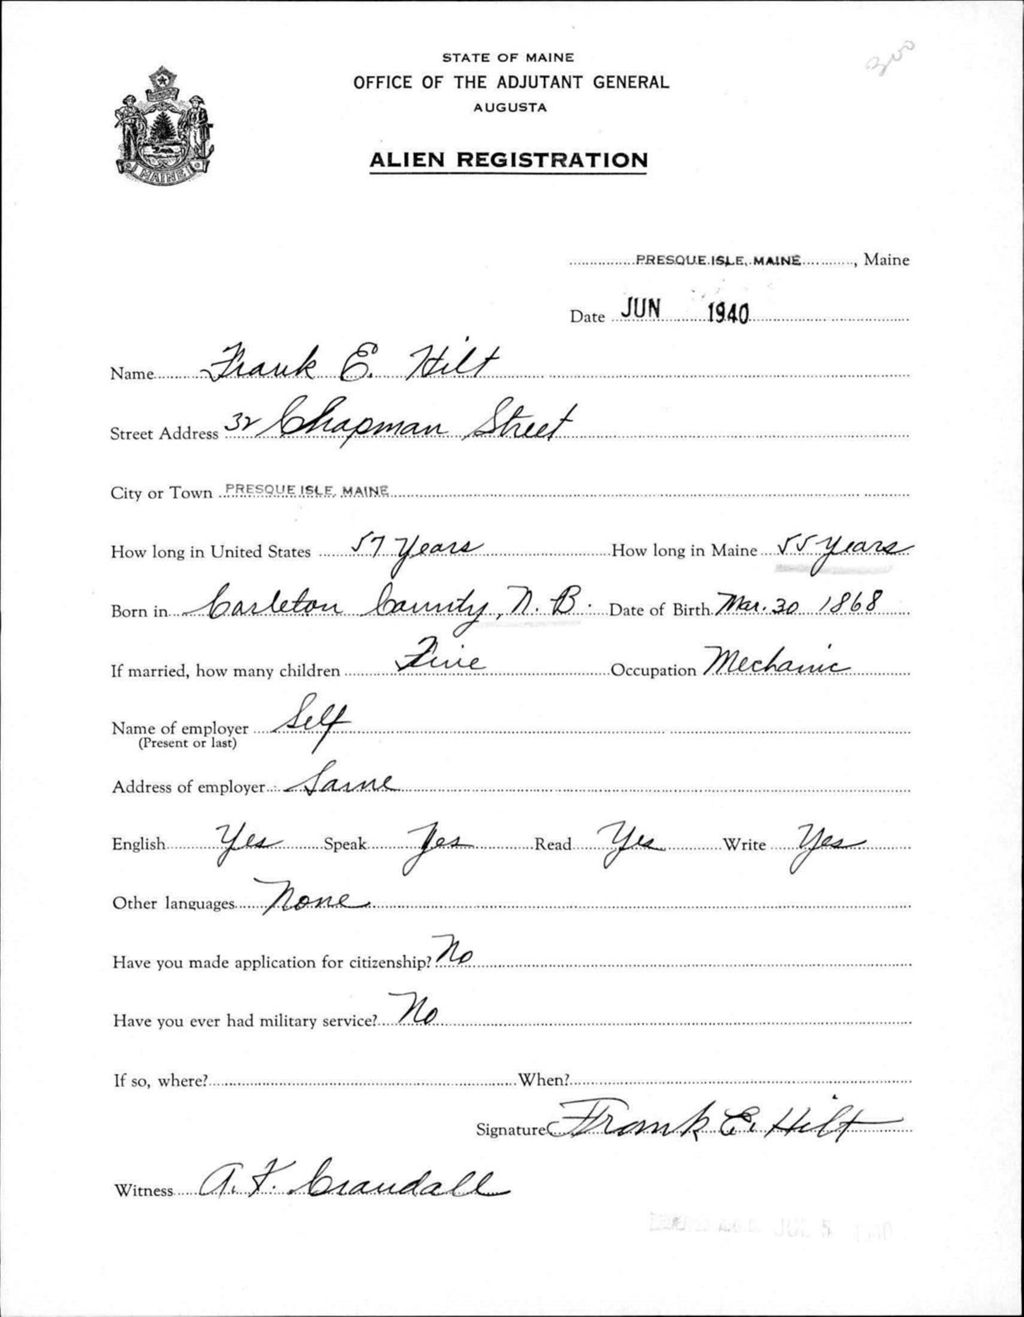 STATE OF MAINE
OFFICE OF THE ADJUTANT GENERAL
AUGUSTA
ALIEN REGISTRATION
MAINE
PRESQUE ISLE, MAINE, Maine
Date JUN 1940
Name Frank E. Hilt
Street Address 32 Chapman Street
City or Town PRESQUE ISLE, MAINE
How long in United States 57 Years How long in Maine 55 years
Born in Carleton County, N. B. Date of Birth Mar. 30 1868
If married, how many children Five Occupation Mechanic
Name of employer Self
(Present or last)
Address of employer Same
English Yes Speak Yes Read Yes Write Yes
Other languages None
Have you made application for citizenship? No
Have you ever had military service? No
If so, where? When?
Signature Frank E. Hilt
Witness A. F. Crandall